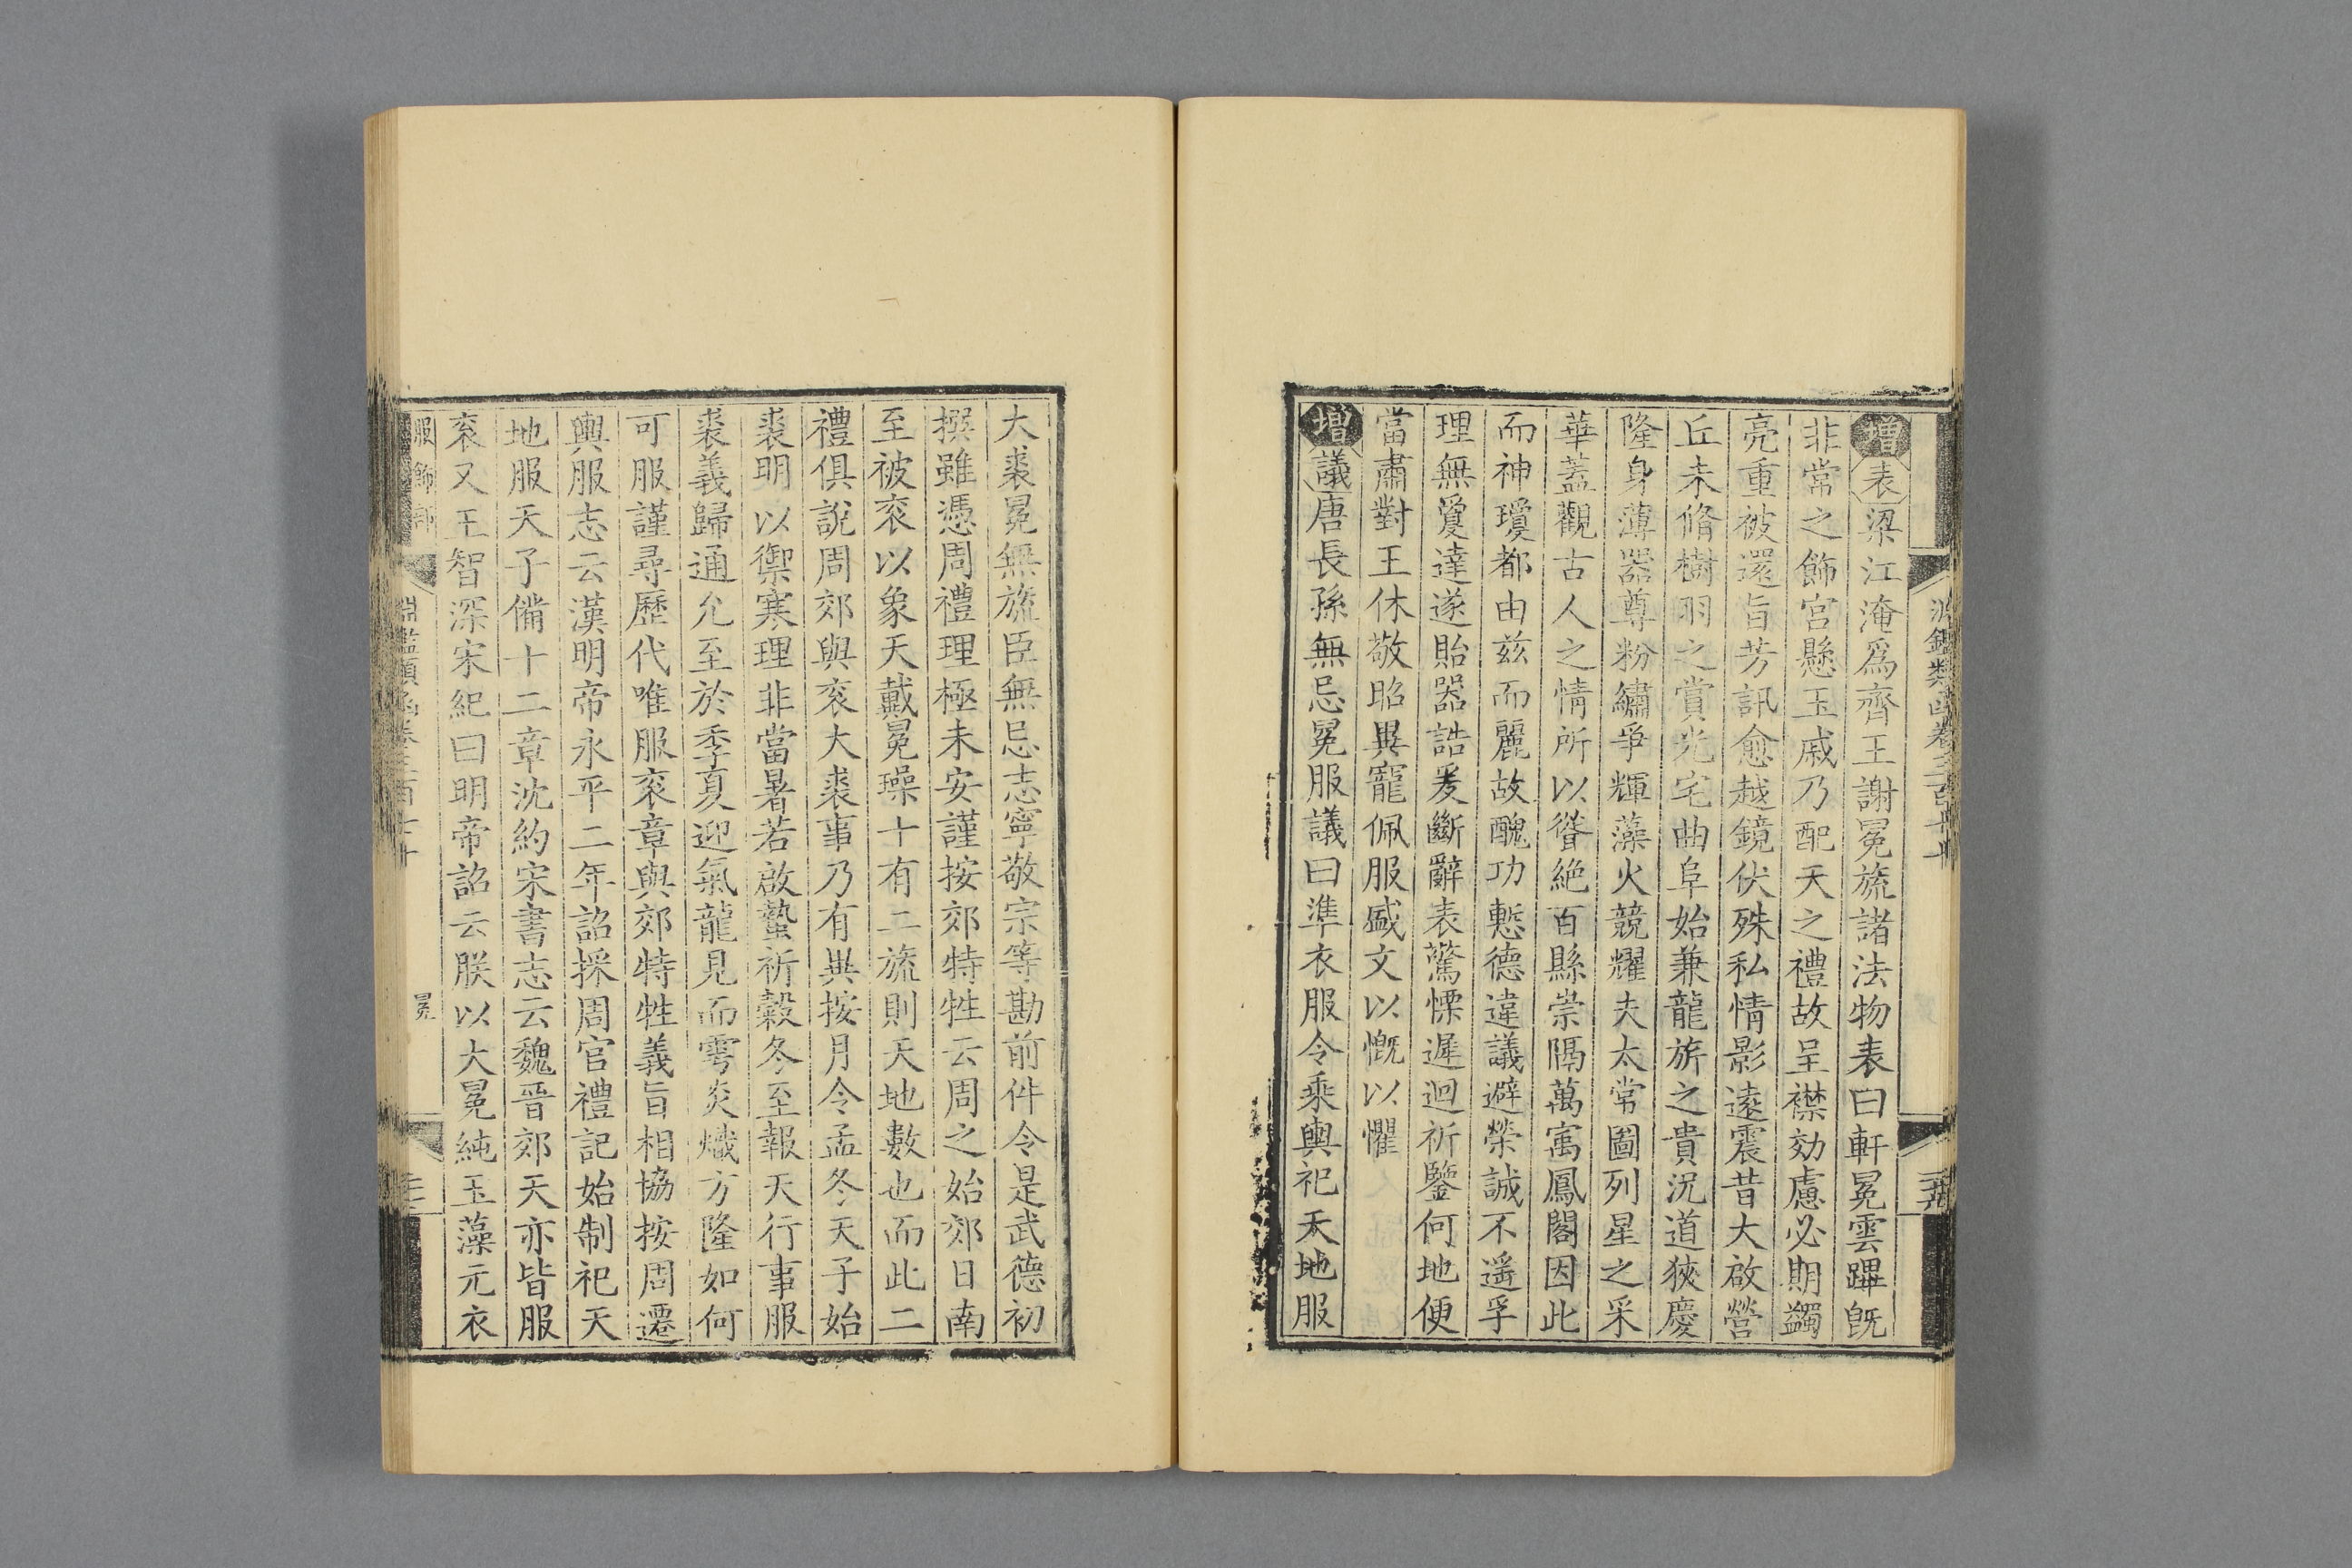 增表梁江淹爲齊王謝冕旒諸法物表曰軒冕雲蹕旣
非常之飾宮懸玉戚乃配天之禮故呈襟効慮必期蠲
亮重被還旨芳訊愈越鏡伏殊私情影遠震昔大啟營
丘未脩樹羽之賞光宅曲阜始兼龍旂之貴況道狹慶
隆身薄器尊粉繡爭輝藻火競耀夫太常圖列星之采
華蓋觀古人之情所以聳絶百縣崇隅萬寓鳳閣因此
而神瓊都由兹而麗故醜功慙德違議避榮誠不遥孚
理無爰達遂貽器誥爰斷辭表驚慄遲迴祈鑒何地便
當肅對王休敬昭異寵佩服盛文以慨以懼
增議唐長孫無忌冕服議曰準衣服令乘輿祀天地服
大裘冕無旒臣無忌志寧敬宗等勘前件令是武德初
撰雖憑周禮理極未安謹按郊特牲云周之始郊日南
至被衮以象天戴冕璪十有二旒則天地數也而此二
禮俱說周郊與衮大裘事乃有異按月令孟冬天子始
裘明以禦寒理非當暑若啟蟄祈穀冬至報天行事服
裘義歸通允至於季夏迎氣龍見而雩炎熾方隆如何
可服謹尋歷代唯服衮章與郊特牲義旨相協按周遷
輿服志云漢明帝永平二年詔採周官禮記始制祀天
地服天子備十二章沈約宋書志云魏晉郊天亦皆服
衮又王智深宋紀曰明帝詔云朕以大冕純玉藻元衣
服飾部
淵鑑類函卷三百七十
冕